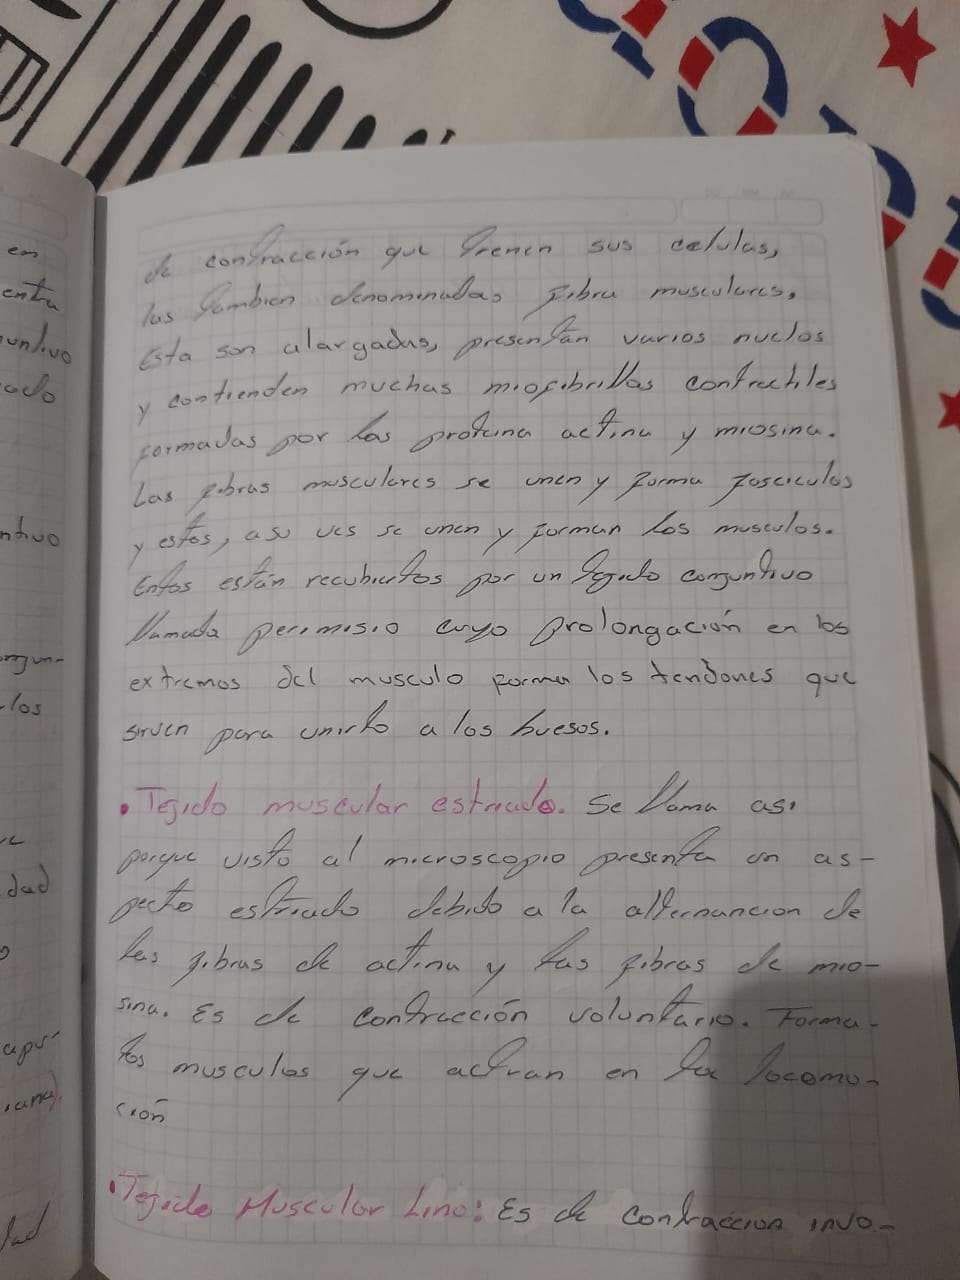 de contracción que tienen sus celulas,
las tambien denominadas fibra musculares,
Esta son alargadas, presentan varios nuclos
y contienden muchas miofibrillas contractiles
formadas por las proteina actina y miosina.
Las fibras musculares se unen y forma fasciculos
y estos, a su ves se unen y forman los musculos.
Entos están recubiertos por un tejido conjuntivo
llamada perimisio cuyo prolongación en los
extremos del musculo forman los tendones que
sirven para unirlo a los huesos.
• Tejido muscular estriado. Se llama asi
porque visto al microscopio presenta un as-
pecto estriado debido a la alternancion de
las fibras de actina y las fibras de mio-
sina. Es de contracción voluntario. Forma-
los musculos que actuan en la locomo-
ción
• Tejido Muscular Liso: Es de contraccion invo-
en
ntivo
los
dad